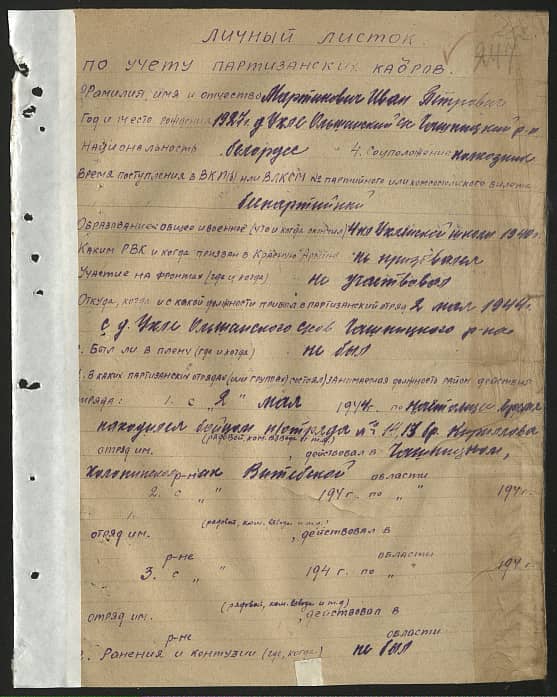 ЛИЧНЫЙ ЛИСТОК
ПО УЧЕТУ ПАРТИЗАНСКИХ КАДРОВ.
Фамилия, имя и отчество Мартинович Иван Петрович
Год и место рождения 1927 г д Ухле Ольшанский Чашницкий р-н
Национальность белорус 4. Соцположение колхозник
Время поступления в ВКП/б или ВЛКСМ № партийного или комсомольского билета
беспартийный
Образование общее и военное (что и когда окончил) школы 1940г.
Каким РВК и когда призван в Красную Армию не призывался
Участие на фронтах (где и когда) не участвовал
Откуда, когда и с какой должности прибыл в партизанский отряд 2 мая 1944г
с д. Ухле Ольшанского Чашницкого р-на
Был ли в плену (где и когда) не был
1. В каких партизанских отрядах (или группах) состоял, занимаемая должность район действия
отряда: 1. с "2" мая 1944г. по настоящее время
находился бойцом отряда № 14
(рядовой, ком. взвода и т.д.)
отряд им. , действовал в Чашницком,
Холопинском р-нах Витебской области
2. с " " 194 г. по " " 194 г.
(рядовой, ком. взвода и т.д.)
отряд им. , действовал в
р-не области
3. с " " 194 г. по " " 194 г.
(рядовой, ком. взвода и т.д)
отряд им. , действовал в
р-не области
Ранения и контузии (где, когда) не был